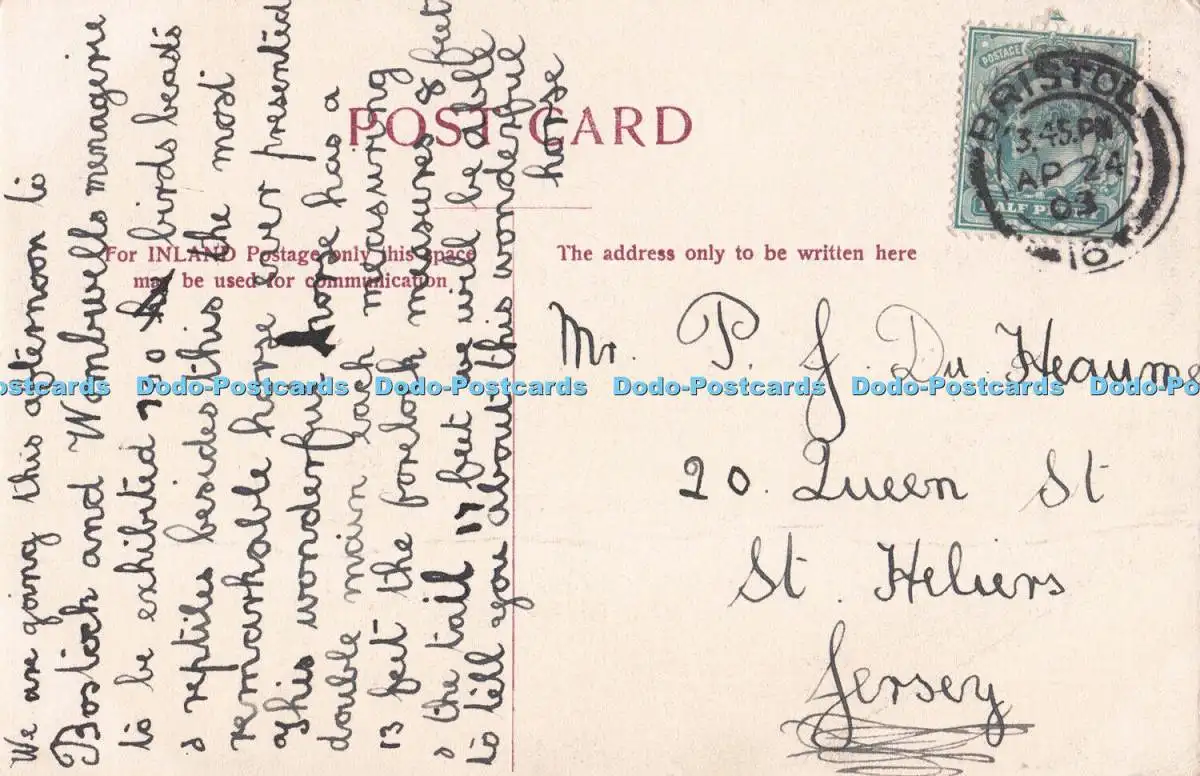 POST CARD
For INLAND Postage only this space
may be used for communication
The address only to be written here
POSTAGE
HALF PENNY
BRISTOL
3.45.PM
AP 24
03
10
We are going this afternoon to
Bostock and Wombwells menagerie
to be exhibited 70 birds beasts
& reptiles besides this the most
remarkable horse ever presented
This wonderful horse has a
double main each measuring
13 feet the foretock measures 8 feet
& the tail 17 feet we will be able
to tell you about this wonderful
horse
Mr. P. J. Du Heaume
20. Queen St
St. Heliers
Jersey
Dodo-Postcards Dodo-Postcards Dodo-Postcards Dodo-Postcards Dodo-Postcards